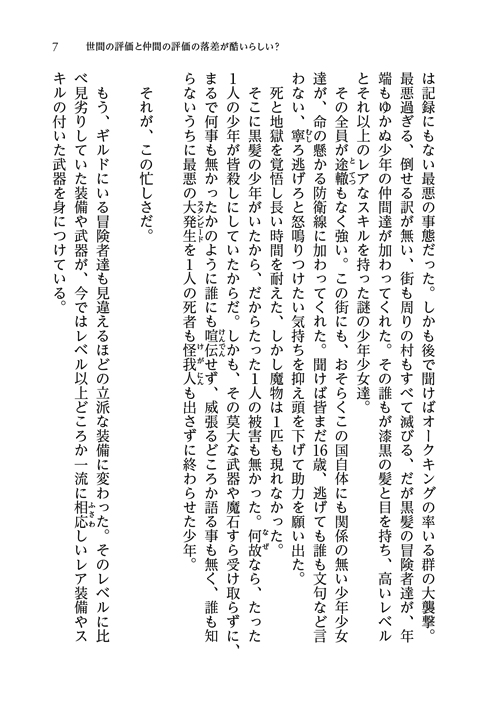 7　世間の評価と仲間の評価の落差が酷いらしい？
は記録にもない最悪の事態だった。しかも後で聞けばオークキングの率いる群の大襲撃。
最悪過ぎる、倒せる訳が無い、街も周りの村もすべて滅びる、だが黒髪の冒険者達が、年
端もゆかぬ少年の仲間達が加わってくれた。その誰もが漆黒の髪と目を持ち、高いレベル
とそれ以上のレアなスキルを持った謎の少年少女達。
その全員が途轍もなく強い。この街にも、おそらくこの国自体にも関係の無い少年少女
達が、命の懸かる防衛線に加わってくれた。聞けば皆まだ16歳、逃げても誰も文句など言
わない、寧ろ逃げろと怒鳴りつけたい気持ちを抑え頭を下げて助力を願い出た。
死と地獄を覚悟し長い時間を耐えた、しかし魔物は１匹も現れなかった。
そこに黒髪の少年がいたから、だからたった１人の被害も無かった。何故なら、たった
１人の少年が皆殺しにしていたからだ。しかも、その莫大な武器や魔石すら受け取らずに、
まるで何事も無かったかのように誰にも喧伝せず、威張るどころか語る事も無く、誰も知
らないうちに最悪の大発生を１人の死者も怪我人も出さずに終わらせた少年。
それが、この忙しさだ。
もう、ギルドにいる冒険者達も見違えるほどの立派な装備に変わった。そのレベルに比
べ見劣りしていた装備や武器が、今ではレベル以上どころか一流に相応しいレア装備やス
キルの付いた武器を身につけている。